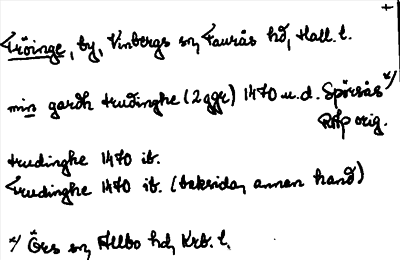 +
Tröinge, by, Vinbergs sn, Faurås hd, Hall. l.
min gardh trudinghe (2 ggr) 1470 u.d. Spörsås x/
RAp orig.
trudinghe 1470 ib.
Trudinghe 1470 ib. (baksida, annan hand)
x/ Örs sn, Allbo hd, Krb. l.